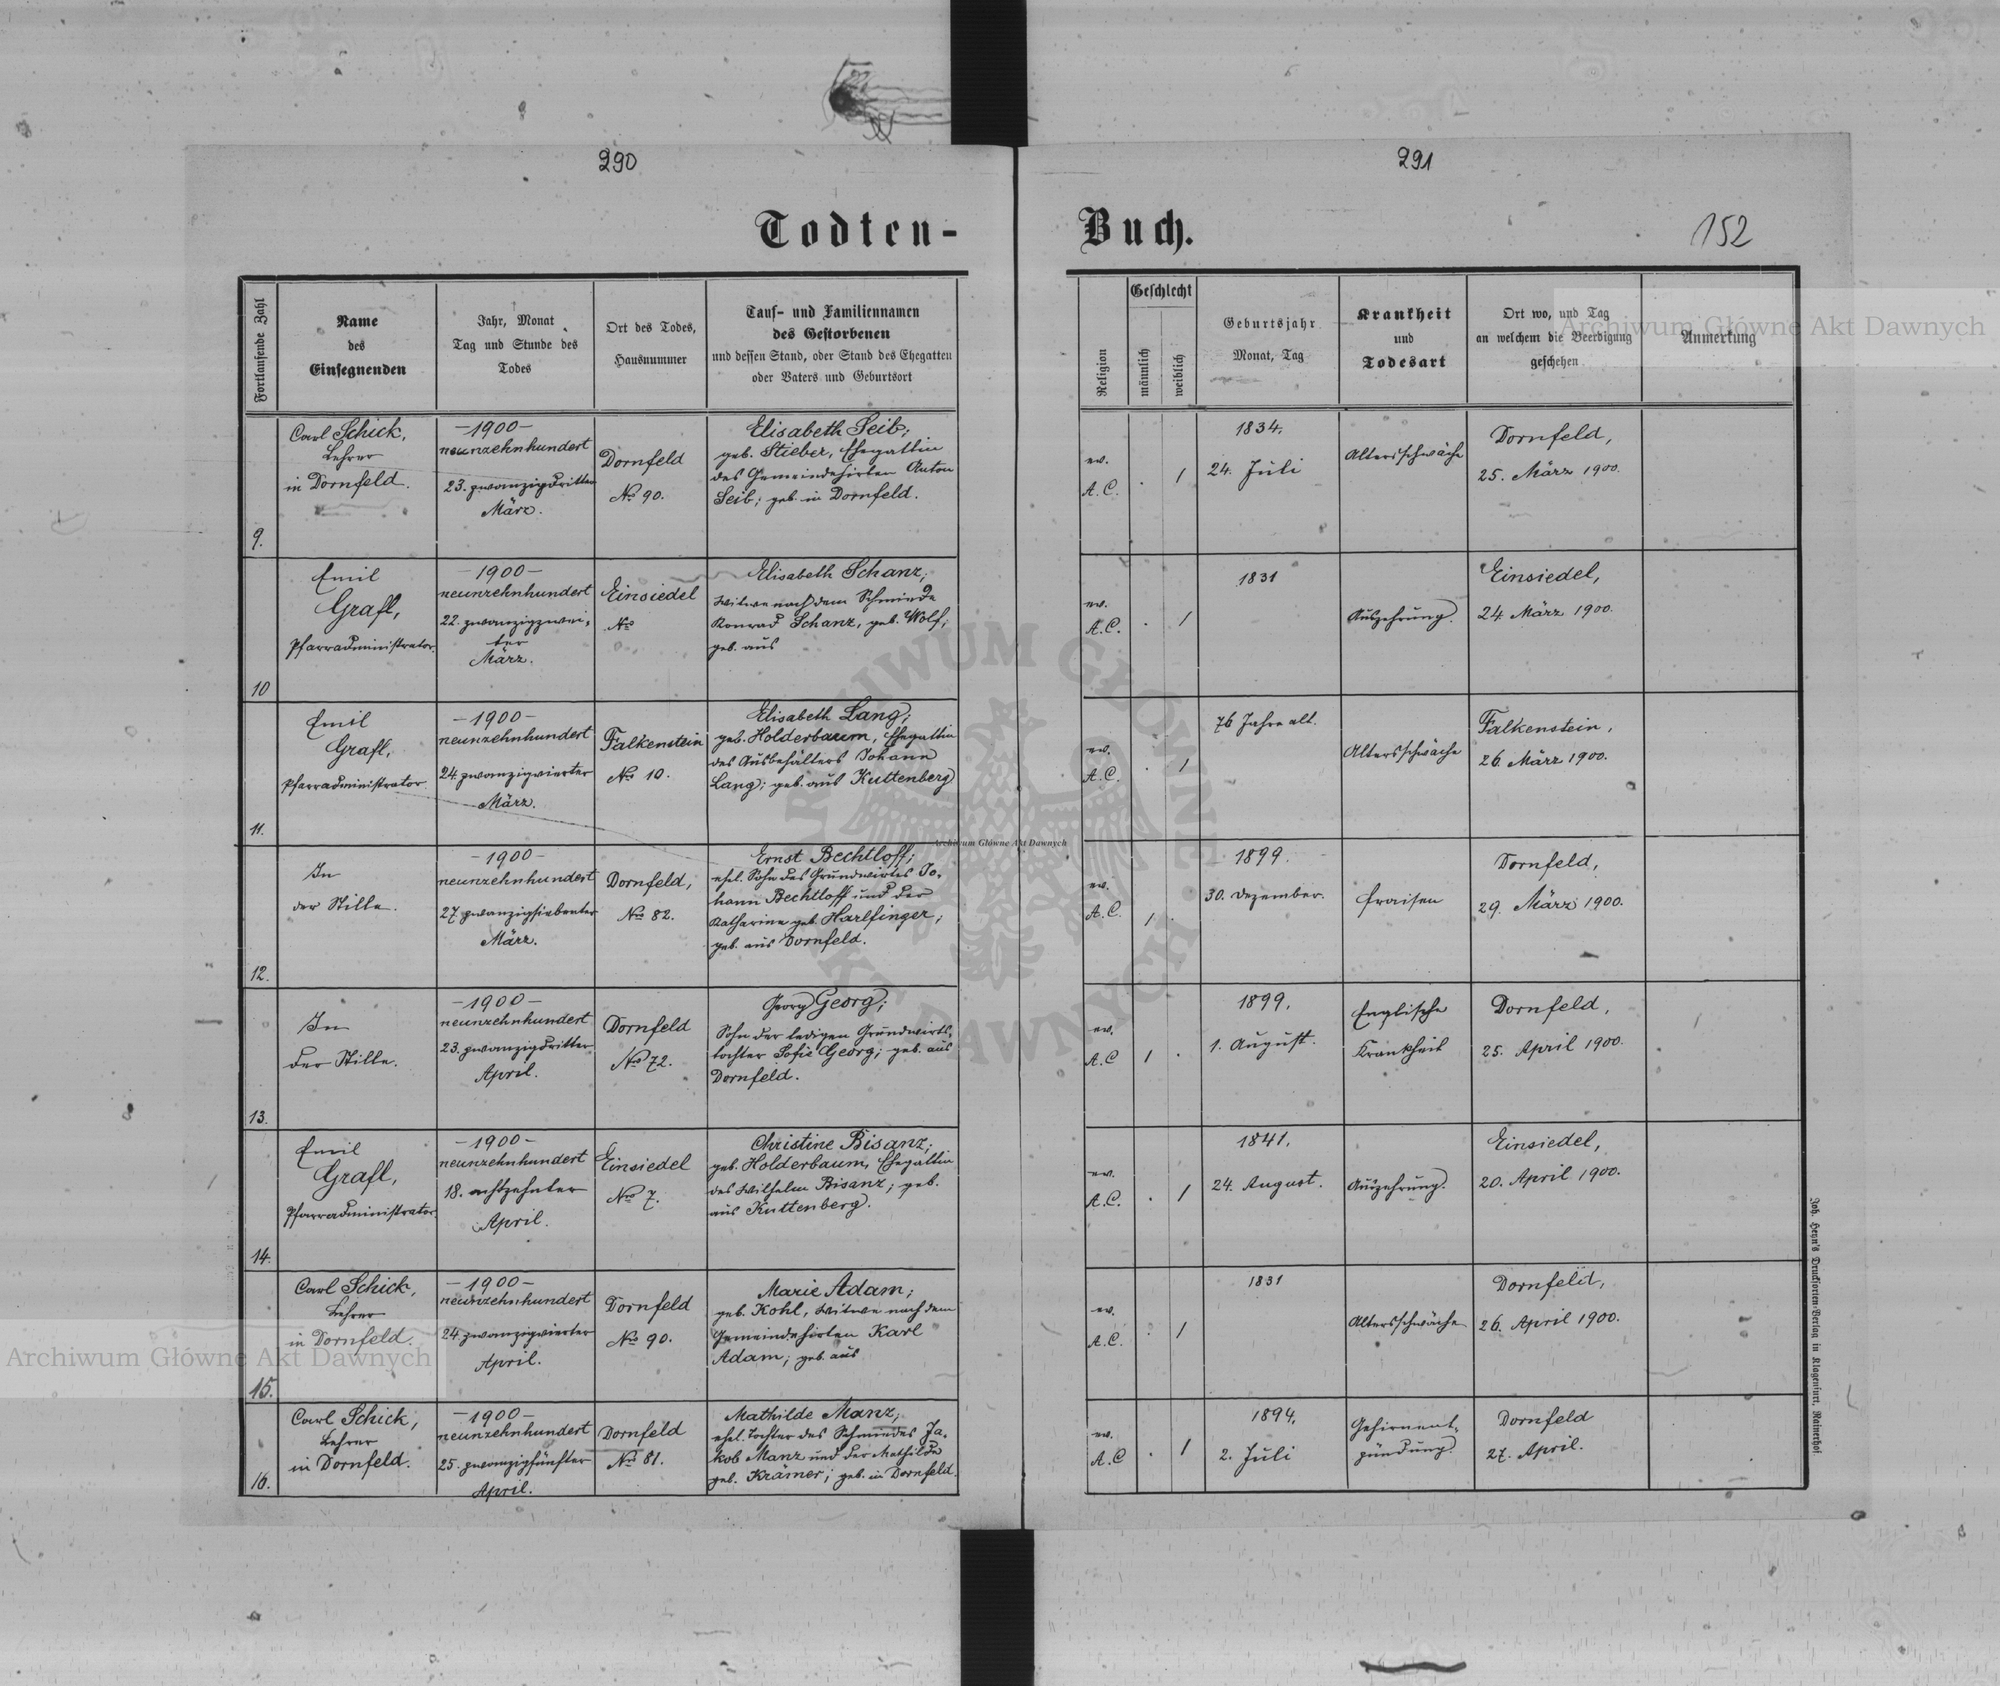 290
291
152
Todten-
Buch.
Fortlaufende Zahl
Name
des
Einsegnenden
Jahr, Monat
Tag und Stunde des
Todes
Ort des Todes,
Hausnummer
Tauf- und Familiennamen
des Gestorbenen
und dessen Stand, oder Stand des Ehegatten
oder Vaters und Geburtsort
Religion
Geschlecht
männlich
weiblich
Geburtsjahr
Monat, Tag
Krankheit
und
Todesart
Ort wo, und Tag
an welchem die Beerdigung
geschehen.
Anmerkung
9.
Carl Schick,
Lehrer
in Dornfeld.
-1900-
neunzehnhundert
23. zwanzigdritten
März.
Dornfeld
No 90.
Elisabeth Seib;
geb. Stieber, Ehegattin
des Gemeindehirten Anton
Seib; geb. in Dornfeld.
ev.
A.C.
. 1
1834.
24. Juli
Altersschwäche
Dornfeld,
25. März 1900.
10
Emil
Grafl,
Pfarradministrator.
-1900-
neunzehnhundert
22. zwanzigzwei-
ter
März.
Einsiedel
No
Elisabeth Schanz;
Witwe nach dem Schmiede
Konrad Schanz, geb. Wolf;
geb. aus
ev.
A.C.
. 1
1831
Auszehrung.
Einsiedel,
24. März 1900.
11.
Emil
Grafl,
Pfarradministrator.
-1900-
neunzehnhundert
24. zwanzigvierter
März.
Falkenstein
No 10.
Elisabeth Lang;
geb. Holderbaum, Ehegattin
des Ausbehälters Johann
Lang; geb. aus Kuttenberg
ev.
A.C.
. 1
76 Jahre alt.
Altersschwäche
Falkenstein,
26. März 1900.
12.
In
der Stille.
-1900-
neunzehnhundert
27. zwanzigsiebenter
März.
Dornfeld,
No 82.
Ernst Bechtloff;
ehel. Sohn des Grundwirtes Jo-
hann Bechtloff und der
Katharine geb. Harlfinger;
geb. aus Dornfeld.
ev.
A.C.
1 .
1899.
30. Dezember.
Fraisen
Dornfeld,
29. März 1900.
13.
In
der Stille.
-1900-
neunzehnhundert
23. zwanzigdritter
April.
Dornfeld
No 72.
Georg Georg;
Sohn der ledigen Grundwirts-
tochter Sofie Georg; geb. aus
Dornfeld.
ev.
A.C
1 .
1899.
1. August.
Englische
Krankheit
Dornfeld,
25. April 1900.
14.
Emil
Grafl,
Pfarradministrator.
-1900-
neunzehnhundert
18. achtzehnter
April.
Einsiedel
No 7.
Christine Bisanz;
geb. Holderbaum, Ehegattin
des Wilhelm Bisanz; geb.
aus Kuttenberg.
ev.
A.C.
. 1
1841.
24. August.
Auszehrung.
Einsiedel,
20. April 1900.
15.
Carl Schick,
Lehrer
in Dornfeld.
-1900-
neunzehnhundert
24. zwanzigvierter
April.
Dornfeld
No 90.
Marie Adam;
geb. Kohl, Witwe nach dem
Gemeindehirten Karl
Adam; geb. aus
ev.
A.C.
. 1
1831
Altersschwäche
Dornfeld,
26. April 1900.
16.
Carl Schick,
Lehrer
in Dornfeld.
-1900-
neunzehnhundert
25. zwanzigfünfter
April.
Dornfeld
No 81.
Mathilde Manz;
ehel. Tochter des Schmiedes Ja-
kob Manz und der Mathilde
geb. Krämer; geb. in Dornfeld.
ev.
A.C
. 1
1894.
2. Juli
Gehirnent-
zündung.
Dornfeld
27. April.
Joh. Heyn's Drucksorten-Verlag in Klagenfurt, Rainerhof
Archiwum Główne Akt Dawnych
Archiwum Główne Akt Dawnych
Archiwum Główne Akt Dawnych
ARCHIWUM GŁÓWNE AKT DAWNYCH